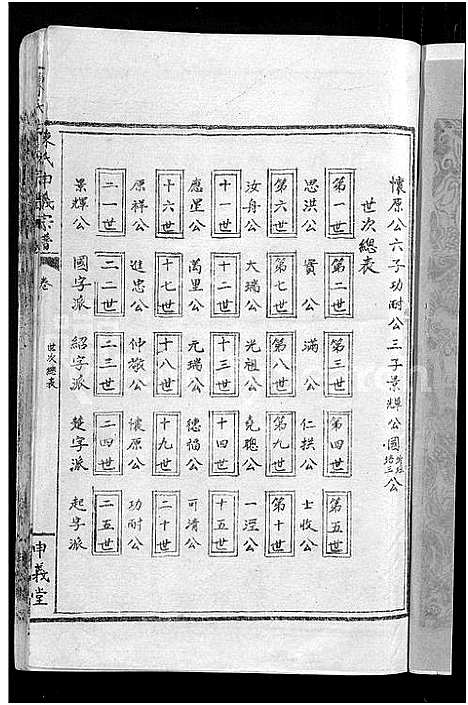 懷原公六子功耐公三子景輝公國公
世次總表
第一世 第二世 第三世 第四世 第五世
思洪公 實公 滿公 仁拱公 士收公
第六世 第七世 第八世 第九世 第十世
汝舟公 大瑞公 光祖公 堯聰公 一涇公
十一世 十二世 十三世 十四世 十五世
應星公 萬里公 元瑞公 德公 可清公
十六世 十七世 十八世 十九世 二十世
原祥公 進忠公 仲敬公 懷原公 功耐公
二一世 二二世 二三世 二四世 二五世
景輝公 國字派 紹字派 楚字派 起字派
陳氏申義宗譜
卷
世次總表
申義堂